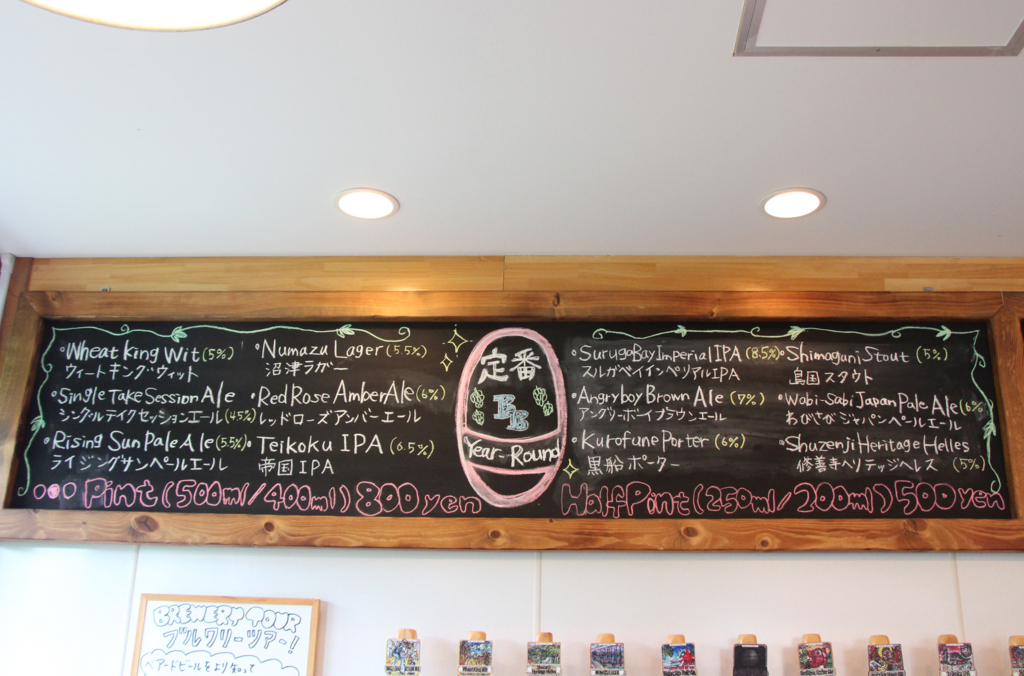 °Wheat King Wit (5%)
ウィートキングウィット
°Single Take Session Ale
シングルテイクセッションエール (4.5%)
°Rising Sun Pale Ale (5.5%)
ライジングサンペールエール
°Numazu Lager (5.5%)
沼津ラガー
°Red Rose Amber Ale (6%)
レッドローズアンバーエール
°Teikoku IPA (6.5%)
帝国IPA
定番
BB
Year-Round
°Suruga Bay Imperial IPA (8.5%)
スルガベイインペリアルIPA
°Angryboy Brown Ale (7%)
アングリーボーイブラウンエール
°Kurofune Porter (6%)
黒船ポーター
°Shimaguni Stout (5%)
島国スタウト
°Wabi-Sabi Japan Pale Ale (6%)
わびさびジャパンペールエール
°Shuzenji Heritage Helles
修善寺ヘリテッジヘレス (5%)
Pint (500ml/400ml) 800yen
Half Pint (250ml/200ml) 500yen
BREWERY TOUR
ブルワリーツアー!
ベアードビールをより知って